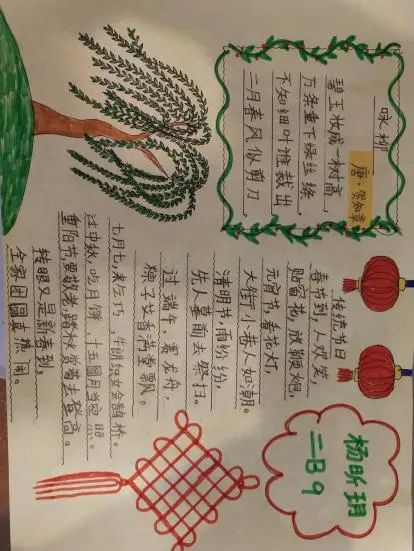 咏柳
唐：贺知章
碧玉妆成一树高，
万条垂下绿丝绦，
不知细叶谁裁出，
二月春风似剪刀。
传统节日
春节到，人欢笑，
贴窗花，放鞭炮，
元宵节，看花灯，
大街小巷人如潮。
清明节，雨纷纷，
先人墓前去祭扫。
过端午，赛龙舟，
粽子艾香满堂飘。
七月七来乞巧，牛郎织女会鹊桥。
过中秋，吃月饼，十五圆月当空照。
重阳节要敬老，踏秋赏菊去登高。
转眼又是新春到，
全家团圆真热闹。
杨昕玥
二B9